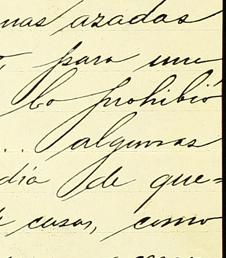 nas azadas
para une
lo prohibió
... algunas
día de que=
casas, como